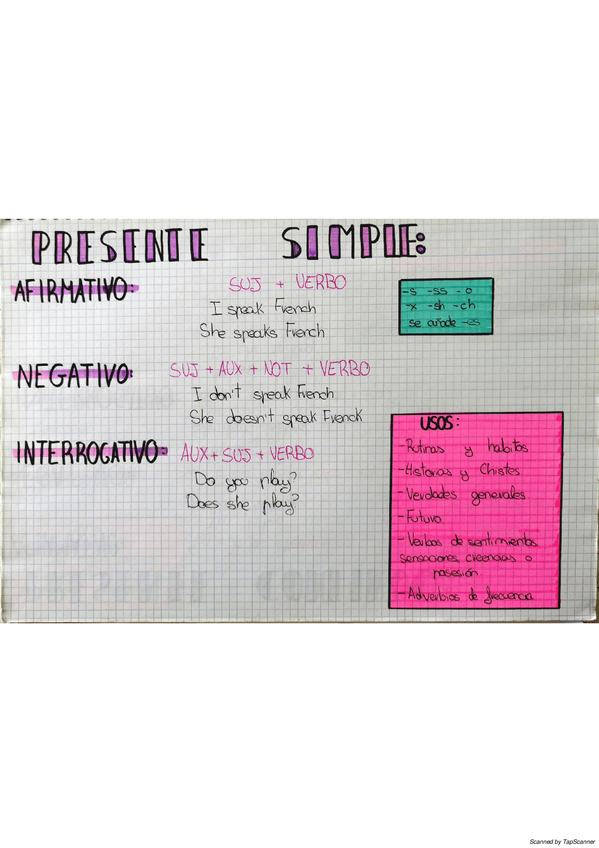 PRESENTE SIMPLE:
AFIRMATIVO:
SUJ + VERBO
I speak French
She speaks French
-s -ss -o
-x -sh -ch
se añade -es
NEGATIVO:
SUJ + AUX + NOT + VERBO
I don't speak French
She doesn't speak French
INTERROGATIVO:
AUX + SUJ + VERBO
Do you play?
Does she play?
USOS:
-Rutinas y habitos
-Historias y Chistes
-Verdades generales
-Futuro
-Verbos de sentimientos
sensaciones, creencias o
posesión.
-Adverbios de frecuencia
Scanned by TapScanner